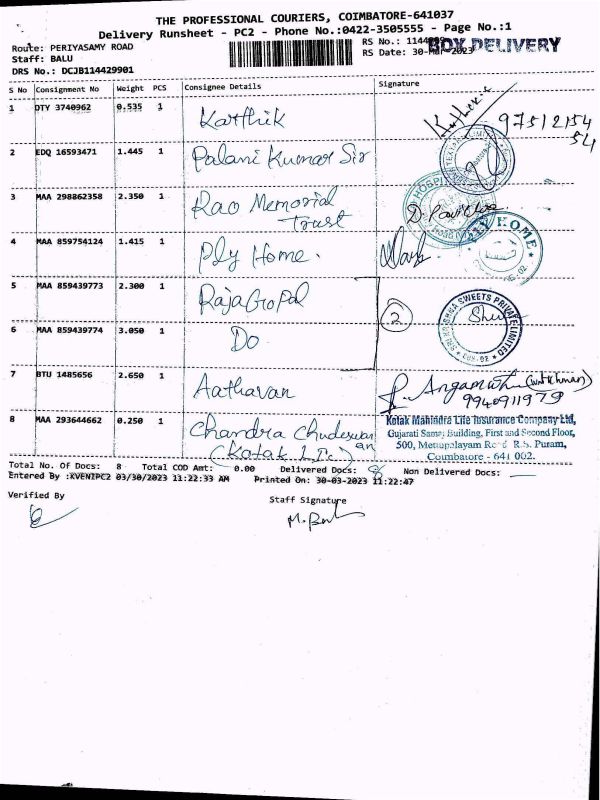 THE PROFESSIONAL COURIERS, COIMBATORE-641037
Delivery Runsheet - PC2 - Phone No.:0422-3505555 - Page No.:1
Route: PERIYASAMY ROAD
Staff: BALU
DRS No.: DCJB114429901
RS No.: 1144
RS Date: 30-Mar-2023
BOX DELIVERY
S No Consignment No Weight PCS Consignee Details Signature
1 DTY 3740962 0.535 1 Karthik 97512154
54
2 EDQ 16593471 1.445 1 Palani Kumar Sir
3 MAA 298862358 2.350 1 Rao Memorial
Trust
HOSPI
4 MAA 859754124 1.415 1 Ply Home.
HOME
5 MAA 859439773 2.300 1 RajaGopal
2
SRI KRISHNA SWEETS PRIVATE LIMITED
6 MAA 859439774 3.050 1 Do
7 BTU 1485656 2.650 1 Aathavan
9940911979
8 MAA 293644662 0.250 1 Chandra
(Kotak
Kotak Mahindra Life Insurance Company Ltd,
Gujarati Samaj Building, First and Second Floor,
500, Mettupalayam Road R.S. Puram,
Coimbatore - 641 002.
Total No. Of Docs: 8 Total COD Amt: 0.00 Delivered Docs: 8 Non Delivered Docs:
Entered By :KVENIPC2 03/30/2023 11:22:33 AM Printed On: 30-03-2023 11:22:47
Verified By
Staff Signature